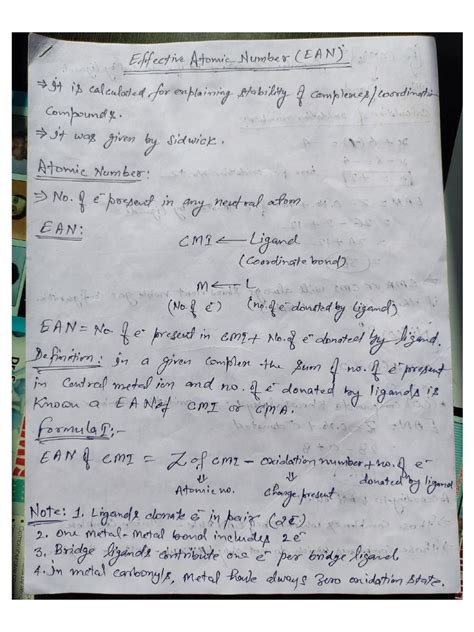 Effective Atomic Number (EAN)
⇒ It is calculated for explaining stability of complexes/coordination
compounds.
⇒ It was given by Sidwick.
Atomic Number:
⇒ No. of e⁻ present in any neutral atom
EAN:
CMI ← Ligand
(Coordinate bond)
M ← L
(No. of e⁻) (no. of e⁻ donated by ligand)
EAN = No. of e⁻ present in CMI + No. of e⁻ donated by ligand.
Definition: In a given complex the sum of no. of e⁻ present
in central metal ion and no. of e⁻ donated by ligands is
known a EAN of CMI or CMA.
Formula:-
EAN of CMI = Z of CMI - oxidation number + no. of e⁻
donated by ligand
⇓ ⇓
Atomic no. charge present
Note: 1. Ligands donate e⁻ in pair (2e⁻)
2. One Metal-Metal bond includes 2e⁻
3. Bridge ligands contribute one e⁻ per bridge ligand
4. In metal carbonyls, Metal have always zero oxidation state.